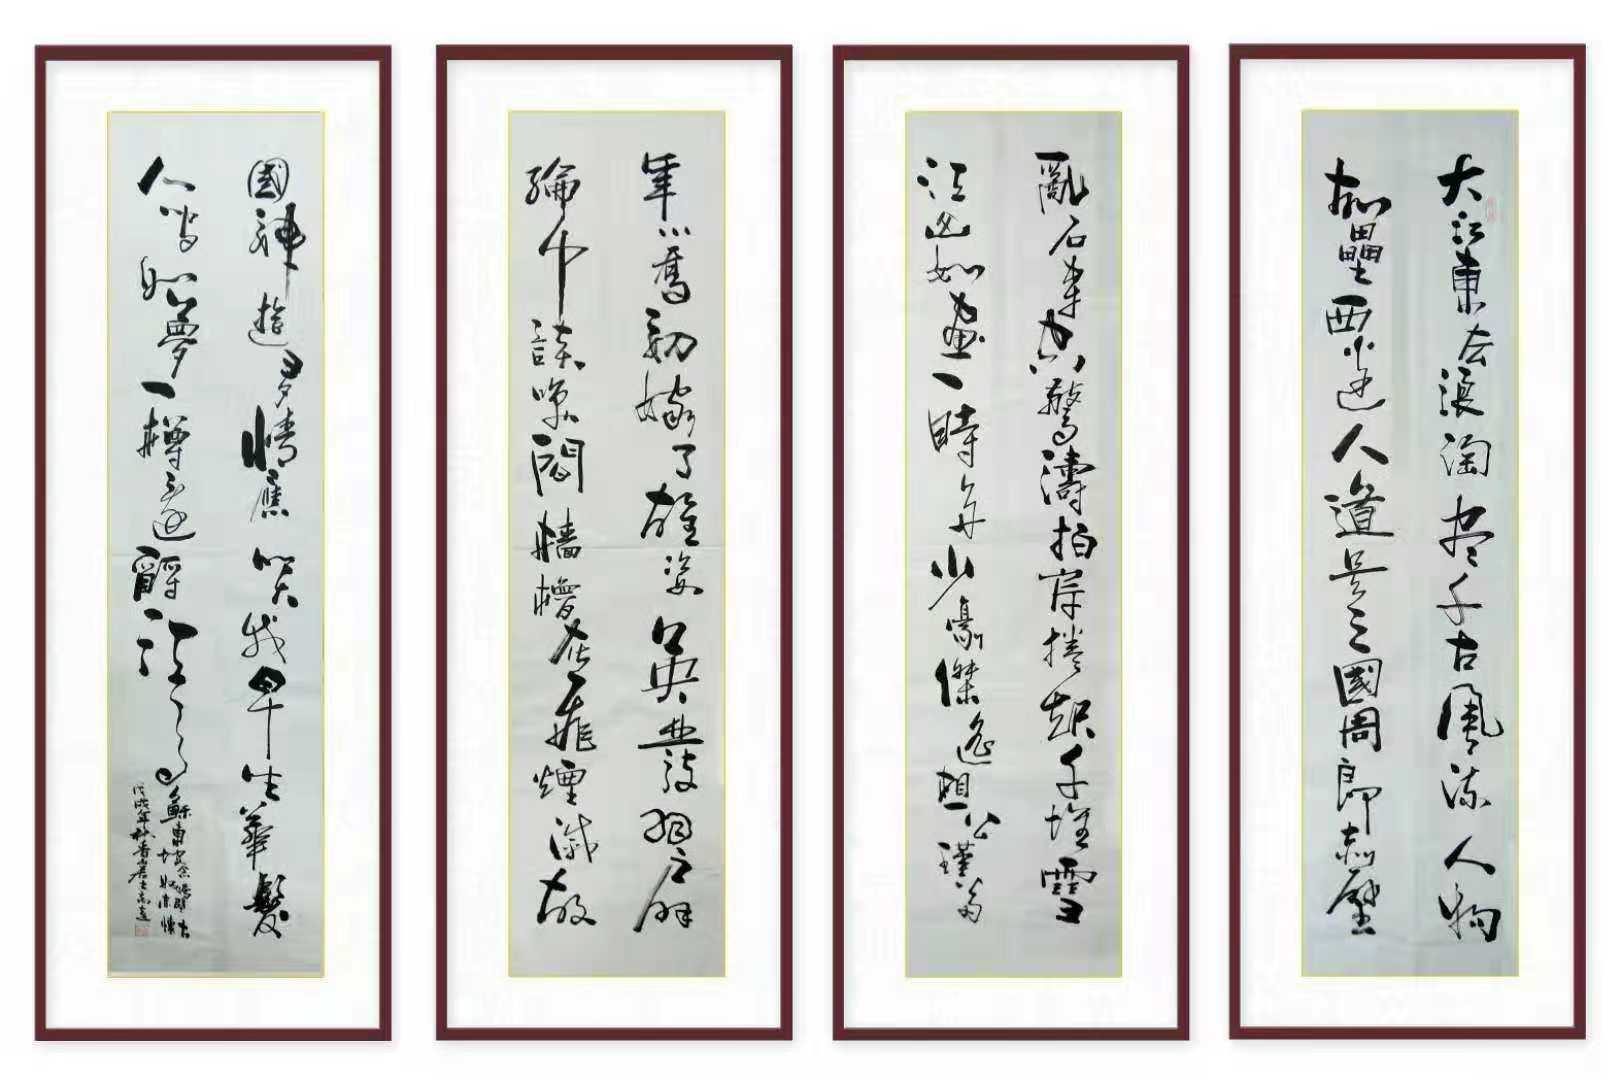 大江東去浪淘尽千古風流人物
故壘西邊人道是三國周郎赤壁
亂石穿空驚濤拍岸捲起千堆雪
江山如畫一時多少豪傑遙想公瑾當
年小喬初嫁了雄姿英發羽扇
綸巾談咲間檣櫓灰飛煙滅故
國神遊多情應笑我早生華髮
人間如夢一樽還酹江月
蘇東坡念奴嬌
戊戌年秋